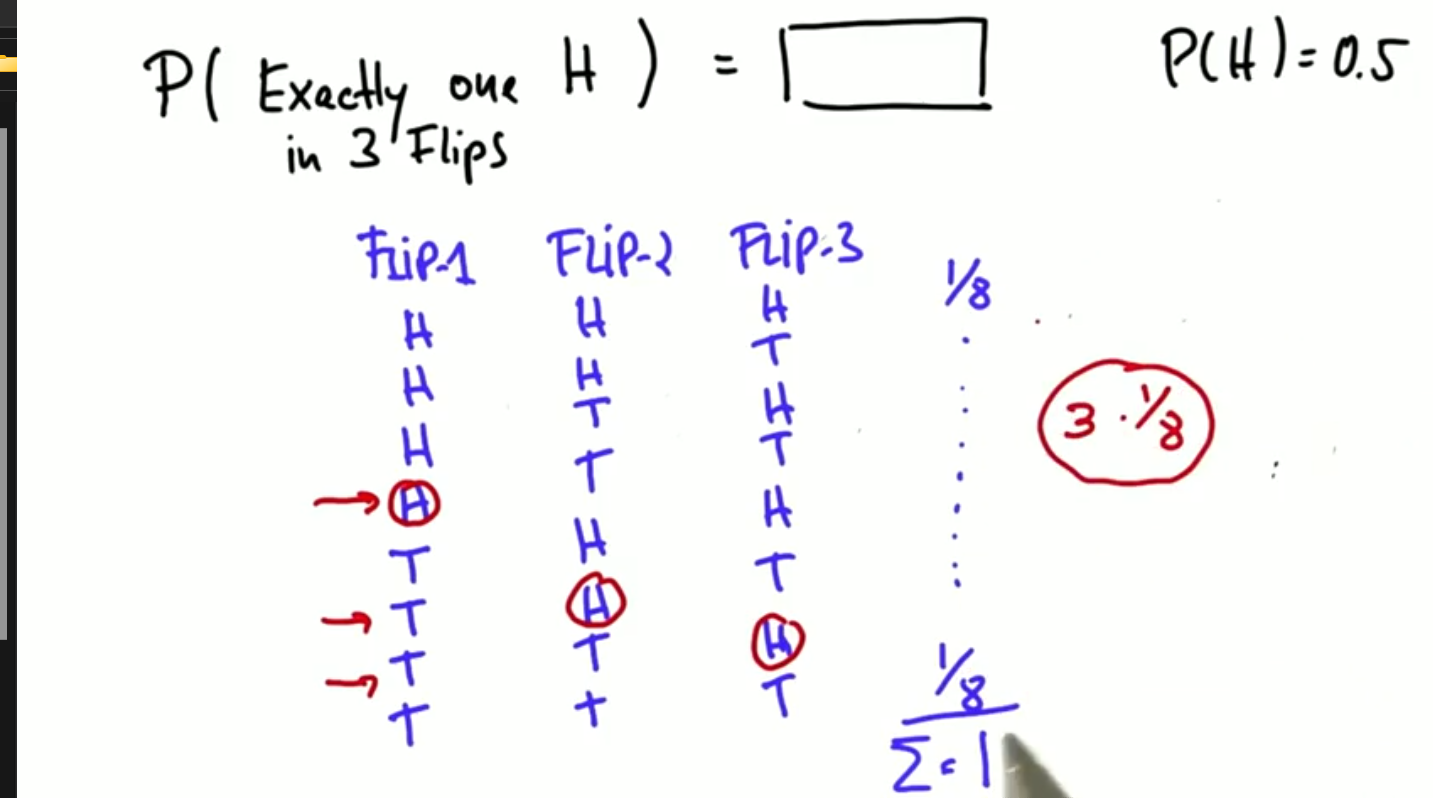 P( Exactly one H ) = P(H) = 0.5
in 3 Flips
Flip-1 Flip-2 Flip-3
H H H 1/8
H H T
H T H
H T T 3 · 1/8
T H H
T H T
T T H
T T T 1/8
Σ = 1